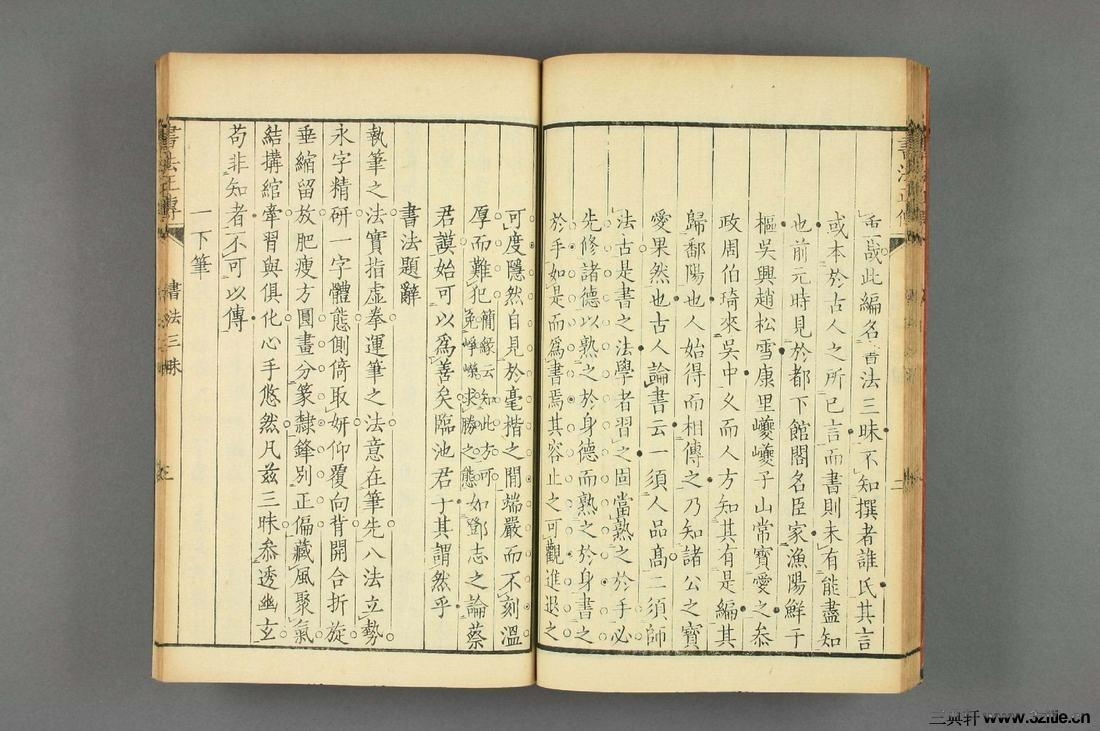 書法正傳
二
舌哉此編名書法三昧不知撰者誰氏其言
或本於古人之所已言而書則未有能盡知
也前元時見於都下館閣名臣家漁陽鮮于
樞吳興趙松雪康里巙巙子山常寶愛之叅
政周伯琦來吳中又而人方知其有是編其
歸鄱陽也人始得而相傳之乃知諸公之寶
愛果然也古人論書云一須人品高二須師
法古是書之法學者習之固當熟之於手必
先修諸德以熟之於身德而熟之於身書之
於手如是而爲書焉其容止之可觀進退之
可度隱然自見於毫楮之間端嚴而不刻溫
厚而難犯簡緣云知此方可免崢嶸求勝之態如鄧志之論蔡
君謨始可以爲善矣臨池君于其謂然乎
書法題辭
執筆之法實指虛拳運筆之法意在筆先八法立勢
永字精研一字體態側倚取妍仰覆向背開合折旋
垂縮留放肥瘦方圓畫分篆隸鋒別正偏藏風聚氣
結搆綰牽習與俱化心手悠然凡茲三昧叅透幽玄
苟非知者不可以傳
一下筆
書法正傳
書法三昧
三典轩 www.3zitie.cn